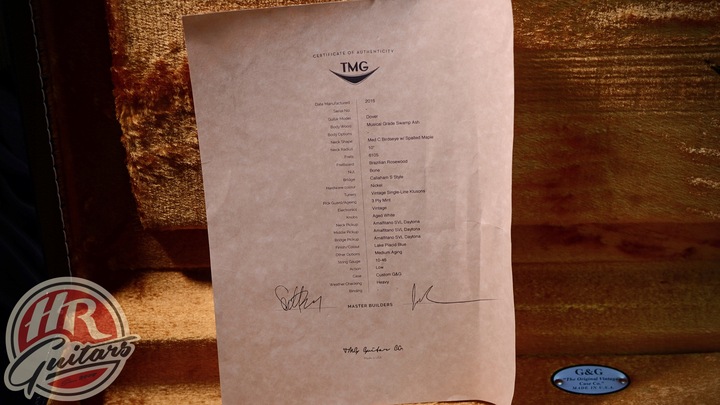 CERTIFICATE OF AUTHENTICITY
TMG
Date Manufactured 2018
Serial No.
Guitar Model Dover
Body Wood Musical Grade Swamp Ash
Body Options
Neck Shape Med C Birdseye w/ Spalted Maple
Neck Radius 10"
Frets 6105
Fretboard Brazilian Rosewood
Nut Bone
Bridge Callaham S Style
Hardware colour Nickel
Tuners Vintage Single-Line Klusons
Pick Guard/Routing 3 Ply Mint
Electronics Vintage
Knobs Aged White
Neck Pickup Amalfitano SVL Daytona
Middle Pickup Amalfitano SVL Daytona
Bridge Pickup Amalfitano SVL Daytona
Finish/Colour Lake Placid Blue
Other Options Medium Aging
String Gauge 10-46
Action Low
Case Custom G&G
Weather Checking Heavy
Binding
MASTER BUILDERS
TMG Guitar Co.
HR
Guitars
G&G
"The Original Vintage
Case Co."
MADE IN U.S.A.